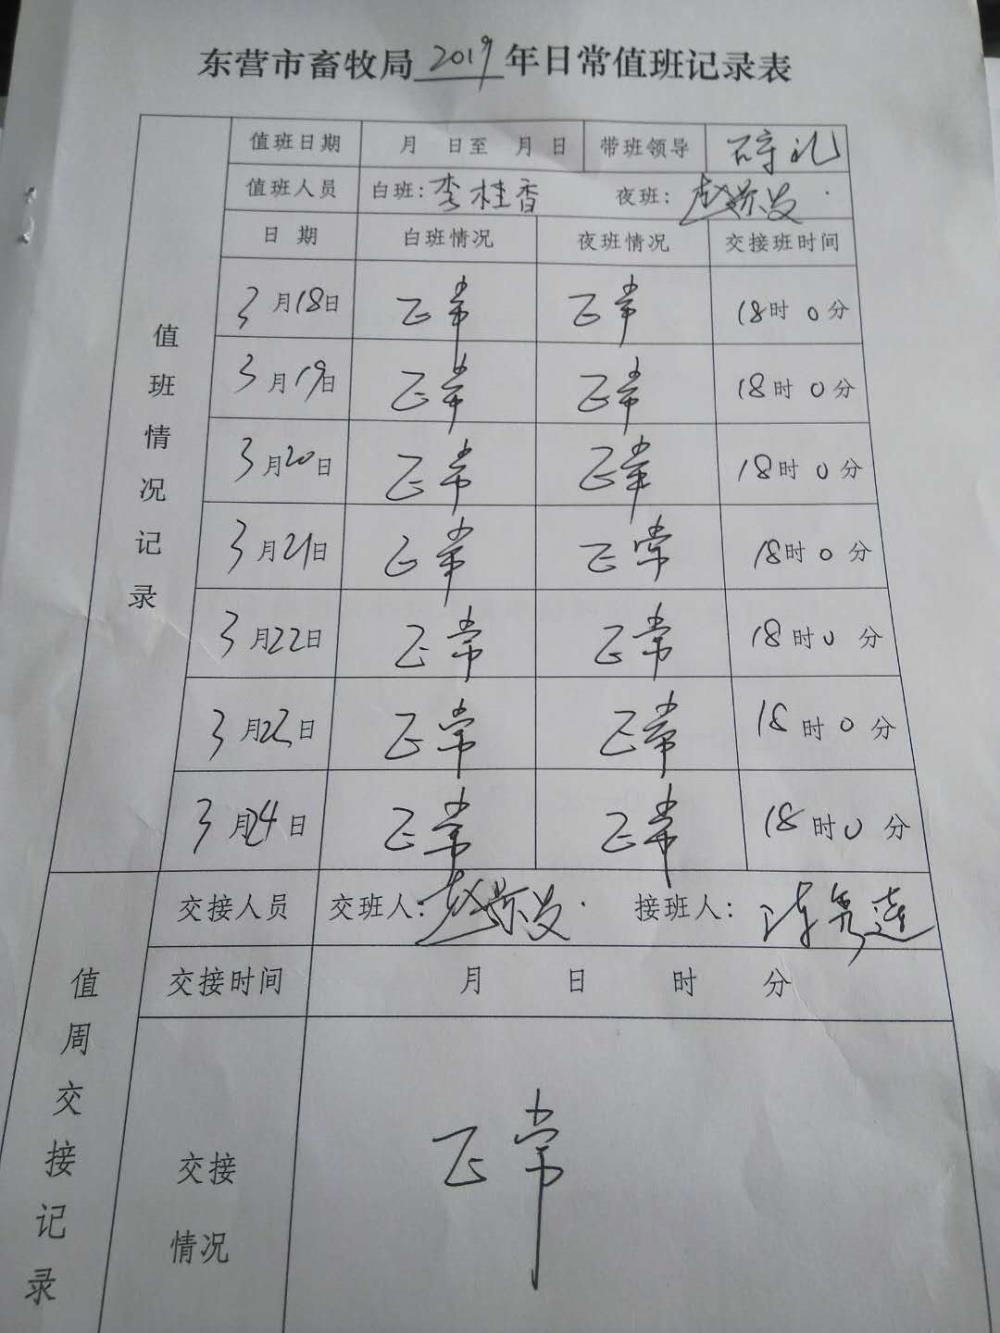 东营市畜牧局2019年日常值班记录表
值班日期 月 日至 月 日 带班领导
值班人员 白班:李桂香 夜班:
日期 白班情况 夜班情况 交接班时间
值班情况记录
3月18日 正常 正常 18时0分
3月19日 正常 正常 18时0分
3月20日 正常 正常 18时0分
3月21日 正常 正常 18时0分
3月22日 正常 正常 18时0分
3月23日 正常 正常 18时0分
3月24日 正常 正常 18时0分
值周交接记录
交接人员 交班人: 接班人:
交接时间 月 日 时 分
交接情况 正常